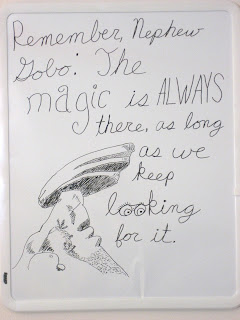 Remember, Nephew
Gobo: The
magic is ALWAYS
there, as long
as we
keep
looking
for it.